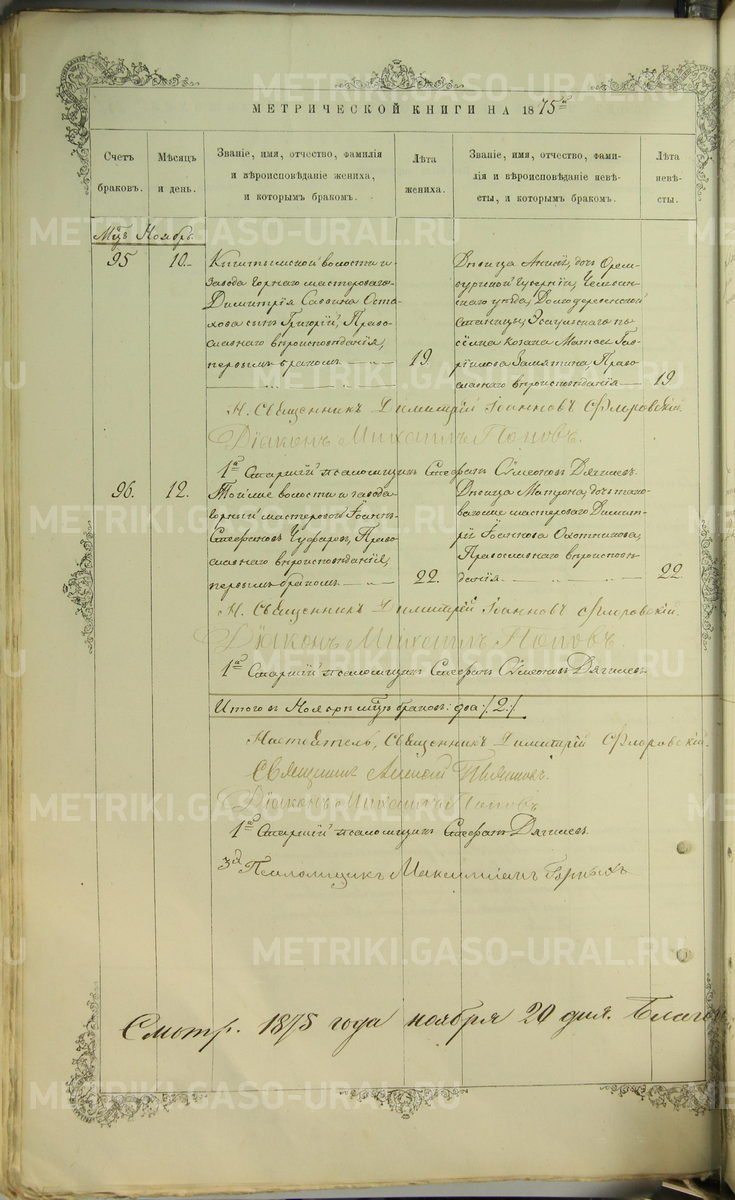 МЕТРИЧЕСКОЙ КНИГИ НА 1875й
Счетъ
браковъ.
Мѣсяцъ
и день.
Званіе, имя, отчество, фамилія
и вѣроисповѣданіе жениха,
и которымъ бракомъ.
Лѣта
жениха.
Званіе, имя, отчество, фами-
лія и вѣроисповѣданіе невѣ-
сты, и которымъ бракомъ.
Лѣта
невѣ-
сты.
Мцъ Ноябрь.
95
10.
Кыштымской волости и
завода горнаго мастероваго
Димитрія Саввина Оста-
хова сынъ Григорій, Право-
славнаго вѣроисповѣданія,
первымъ бракомъ
19.
Дѣвица Анисія, дочь Орен-
бургской Губерніи, Челябин-
скаго уѣзда, Долгодеревенской
Станицы, Эсаульскаго по-
сёлка козака Матвея Гав-
рилова Замятина, Право-
славнаго вѣроисповѣданія
19
Н. Священникъ Димитрій Іоанновъ Флоровскій.
Діаконъ Михаилъ Поповъ.
1й Старшій псаломщикъ Стефанъ Сѵмеоновъ Дягилевъ.
96.
12.
Той же волости и завода
горный мастеровой Іоаннъ
Стефановъ Чуфаровъ, Право-
славнаго вѣроисповѣданія,
первымъ бракомъ
22.
Дѣвица Матрона, дочь тако-
ваго же мастероваго Димит-
рія Іоаннова Охотникова,
Православнаго вѣроисповѣ-
данія
22
Н. Священникъ Димитрій Іоанновъ Флоровскій.
Діаконъ Михаилъ Поповъ.
1й Старшій псаломщикъ Стефанъ Сѵмеоновъ Дягилевъ
Итого въ Ноябрѣ мцѣ браковъ: два /:2:/
Настоятель, Священникъ Димитрій Флоровскій.
Священникъ Алексѣй
Діаконъ Михаилъ Поповъ
1й Старшій псаломщикъ Стефанъ Дягилевъ
Псаломщикъ Максимиліанъ
Смотр. 1875 года ноября 20 дня. Благоч
METRIKI.GASO-URAL.RU